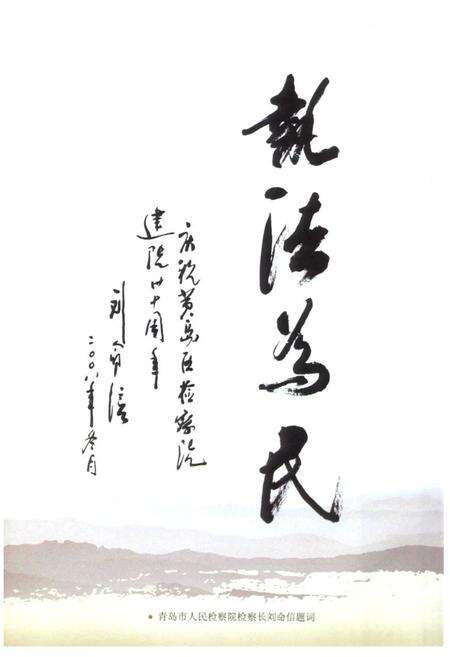 執法为民
庆祝黄岛区检察院
建院廿十周年
刘命信
二〇〇八年冬月
青岛市人民检察院检察长刘命信题词